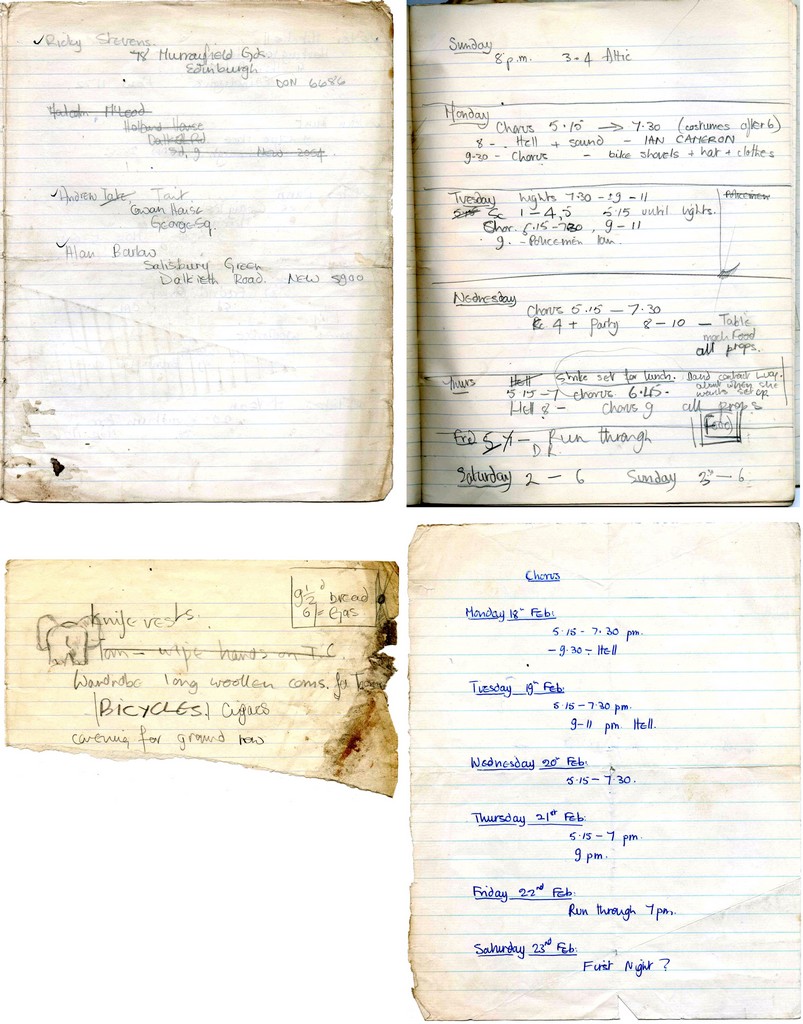 ✓Ricky Stevens.
78 Murrayfield Gds.
Edinburgh
DON 6686
Malcolm McLeod
Holland House
Dalkeith Rd
✓Andrew Tate Tait.
Cowan House
George Sq.
✓Alan Barlow
Salisbury Green
Dalkieth Road. NEW 5900
Sunday
8 p.m. 3 + 4 Attic
Monday
Chorus 5.15 → 7.30 (costumes after 6)
8 - Hell + sound - IAN CAMERON
9-30 - Chorus - bike shovels + hat + clothes
Tuesday Lights 7.30 - 9 - 11
Policemen
5.15 Sc 1 - 4, 5 5.15 until lights.
Chor. 5.15 - 7.30, 9 - 11
9. - Policemen
Wednesday
Chorus 5.15 - 7.30
Sc 4 + Party 8 - 10 - Table
mock Food
all props.
Thurs Hell Strike set for lunch. David contact
about when she
5.15 - 7 chorus 6.45 - wants set up
Hell 8 - Chorus 9 all props
Food
Fri 7 - Run through
D.R.
Saturday 2 - 6 Sunday - 6
9½d bread
6 = Gas
Knife vests.
Tom - wipe hands on T.C.
Wardrobe long woollen coms. for
BICYCLES. Cigars
covering for ground row
Chorus
Monday 18th Feb:
5.15 - 7.30 pm.
- 9.30 - Hell
Tuesday 19th Feb:
5.15 - 7.30 pm.
9 - 11 pm. Hell.
Wednesday 20th Feb:
5.15 - 7.30.
Thursday 21st Feb:
5.15 - 7 pm.
9 pm.
Friday 22nd Feb:
Run through 7 pm.
Saturday 23rd Feb:
First Night ?